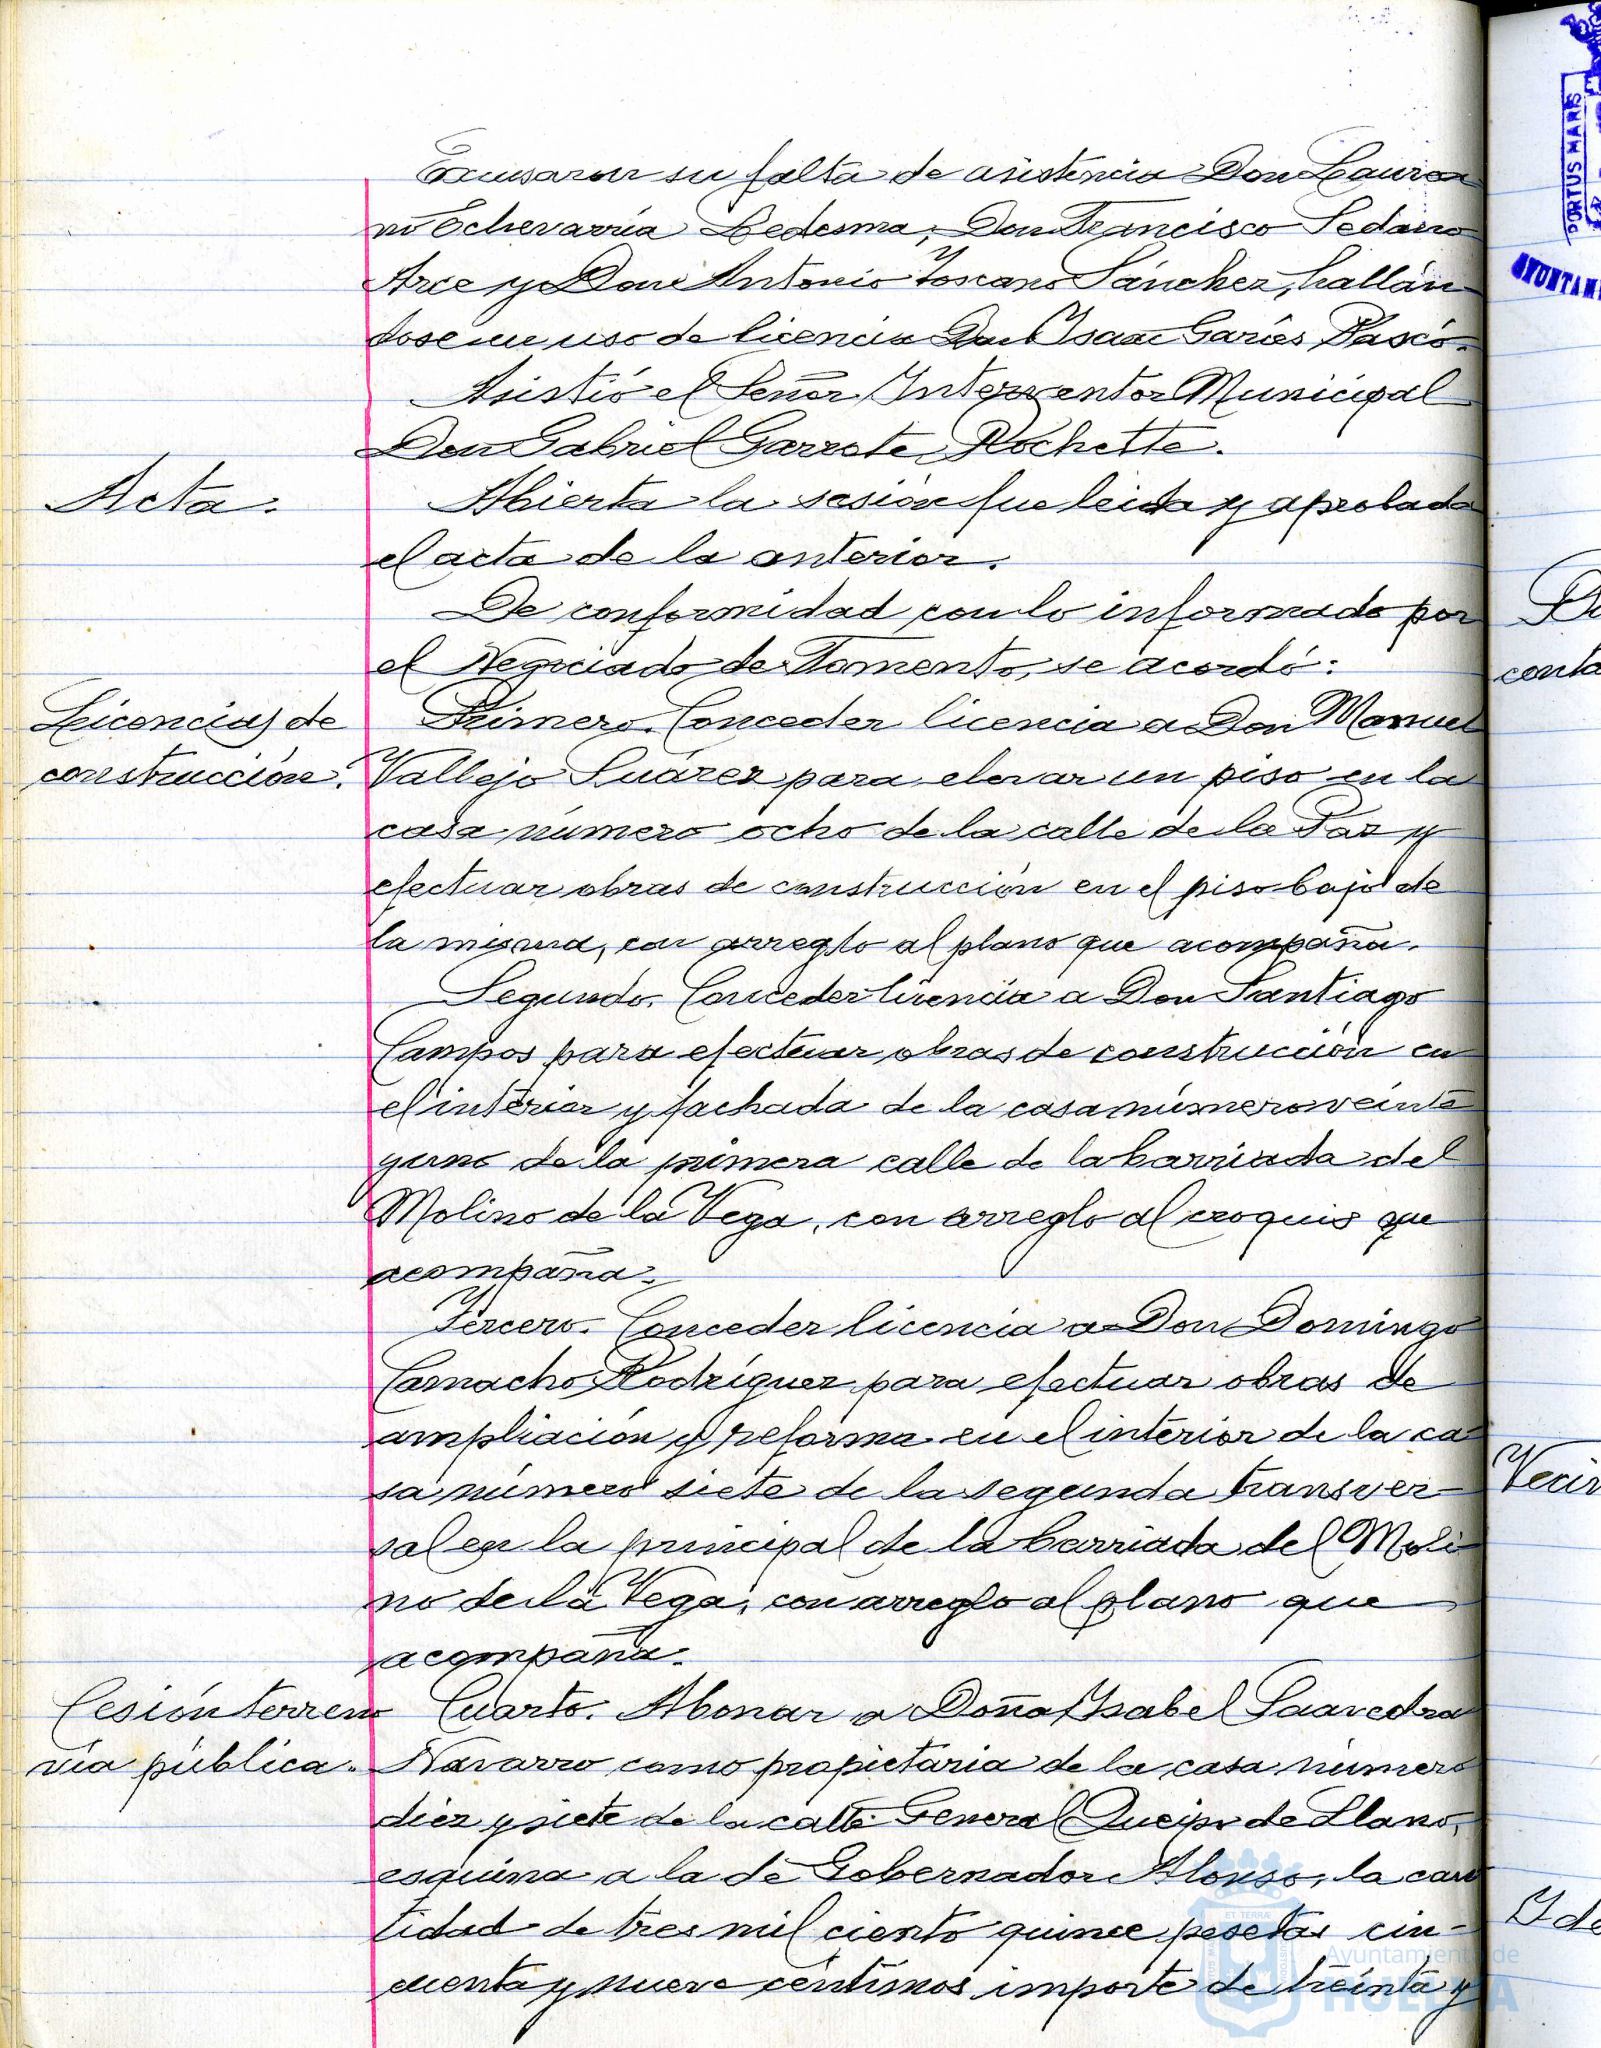 Excusaron su falta de asistencia Don Laurea
no Echevarría Ledesma, Don Francisco Sedano
Arce y Don Antonio Toscano Sánchez, hallán
dose en uso de licencia Don Isaac Garies Pascó.
Asistió el Señor Interventor Municipal
Don Gabriel Garrote Rochette.
Acta.
Abierta la sesión fue leida y aprobada
el acta de la anterior.
De conformidad con lo informado por
el Negociado de Fomento, se acordó:
Licencias de
construcción.
Primero. Conceder licencia a Don Manuel
Vallejo Suárez para elevar un piso en la
casa número ocho de la calle de la Paz y
efectuar obras de construcción en el piso bajo de
la misma, con arreglo al plano que acompaña.
Segundo. Conceder licencia a Don Santiago
Campos para efectuar obras de construcción en
el interior y fachada de la casa número veinte
y uno de la primera calle de la barriada del
Molino de la Vega, con arreglo al croquis que
acompaña.
Tercero. Conceder licencia a Don Domingo
Camacho Rodríguez para efectuar obras de
ampliación y reforma en el interior de la ca
sa número siete de la segunda transver-
sal en la principal de la barriada del Moli
no de la Vega, con arreglo al plano que
acompaña.
Cesión terreno
vía pública.
Cuarto. Abonar a Doña Isabel Saavedra
Navarro como propietaria de la casa número
diez y siete de la calle General Queipo de Llano,
esquina a la de Gobernador Alonso, la can
tidad de tres mil ciento quince pesetas cin-
cuenta y nueve céntimos importe de treinta y
Ayuntamiento de
HUELVA
PORTUS MARIS
ET TERRÆ
AYUNTAMI
conta
Vecin